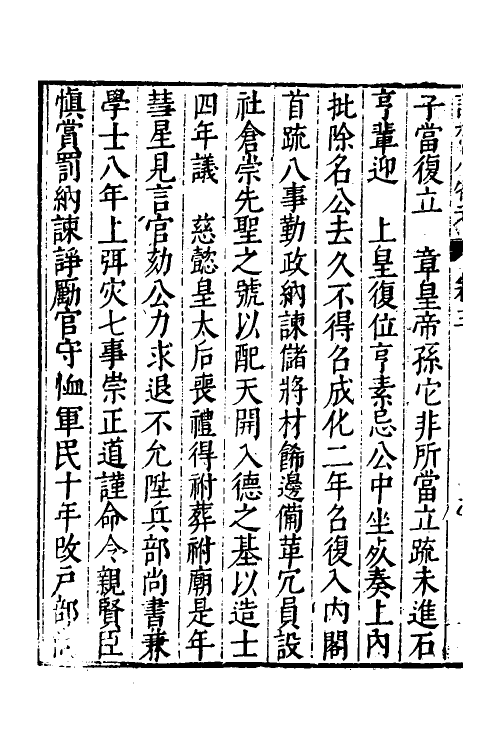 子當復立　章皇帝孫它非所當立疏未進石
亨軰迎　上皇復位亨素忌公中坐歹奏上內
批除名公去久不得名成化二年名復入內閣
首疏八事勤政納諫儲將材飾邊備革冗員設
社倉崇先聖之號以配天開入德之基以造士
四年議　慈懿皇太后喪禮得祔葬祔廟是年
彗星見言官劾公力求退不允陞兵部尚書兼
學士八年上弭灾七事崇正道謹命令親賢臣
愼賞罰納諫諍勵官守恤軍民十年改戶部